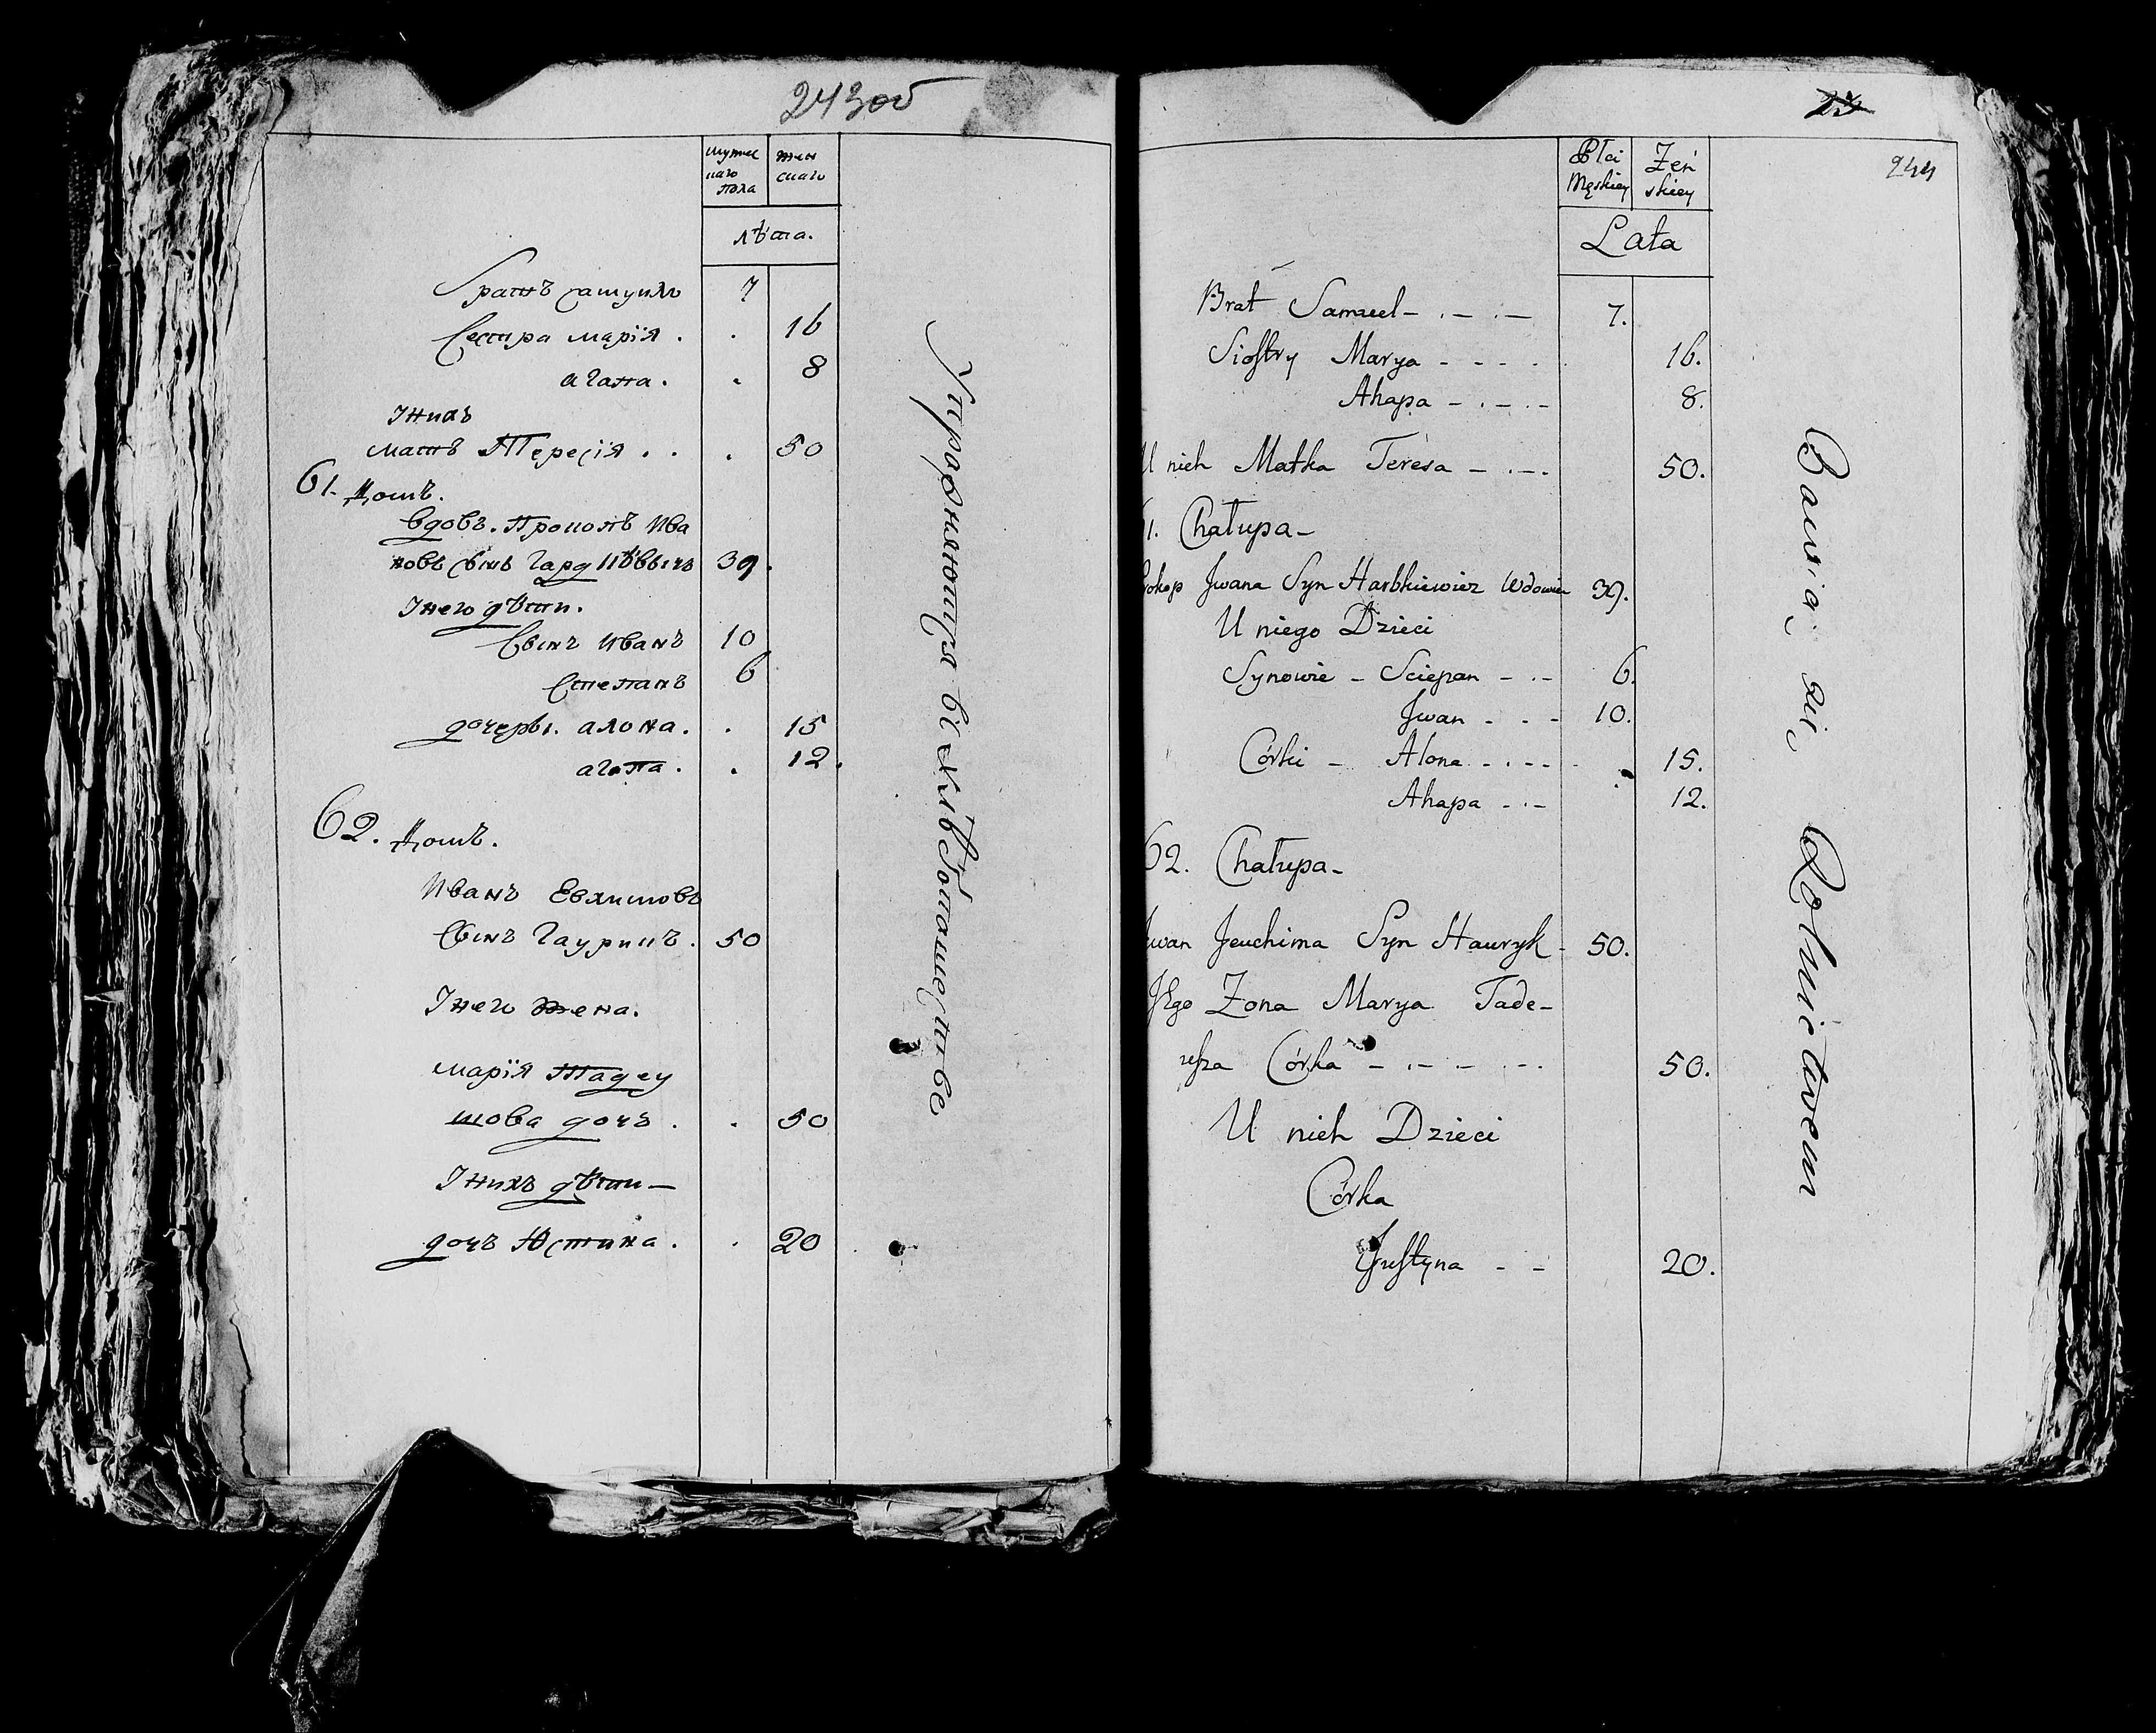 243об
мужес
каго
пола
жен
скаго
лѣта.
Братъ самуилъ 7
Сестра марія . . 16
агапа . . 8
Iнихъ
матъ Тересія . . . 50
61. Домъ.
вдовъ. Прокопъ Ива
новъ Сынъ Гардкѣвычъ 39.
Iнего дѣти.
Сынъ иванъ 10
Степанъ 6
дочеры. алона . . 15
агапа . . 12.
62. Домъ.
Иванъ Евхимовъ
Сынъ Гаурикъ . 50
Iнего жена.
марія Тадеу
шова дочъ . . 50
Iнихъ дѣти –
дочъ Юстина . . 20
Упродняющця въ хлѣбопашестве
25
244
Płci
Męskiey
Żeń
skiey
Lata
Brat Samuel – . – . – 7.
Siostry Marya - - - - 16.
Ahapa – . – . – 8.
U nich Matka Teresa – . – . 50.
1. Chałupa –
rokop Jwana Syn Harbkiewicz Wdowiec 39.
U niego Dzieci
Synowie – Sciepan – . – 6.
Jwan - - - 10.
Córki – Alona - . - - 15.
Ahapa - . – 12.
62. Chałupa –
Jwan Jeuchima Syn Hauryk - 50.
Jego Zona Marya Tade–
usza Córka – . – . – . - . 50.
U nich Dzieci
Córka
Justyna - – 20.
Bawią się Rolnictwem